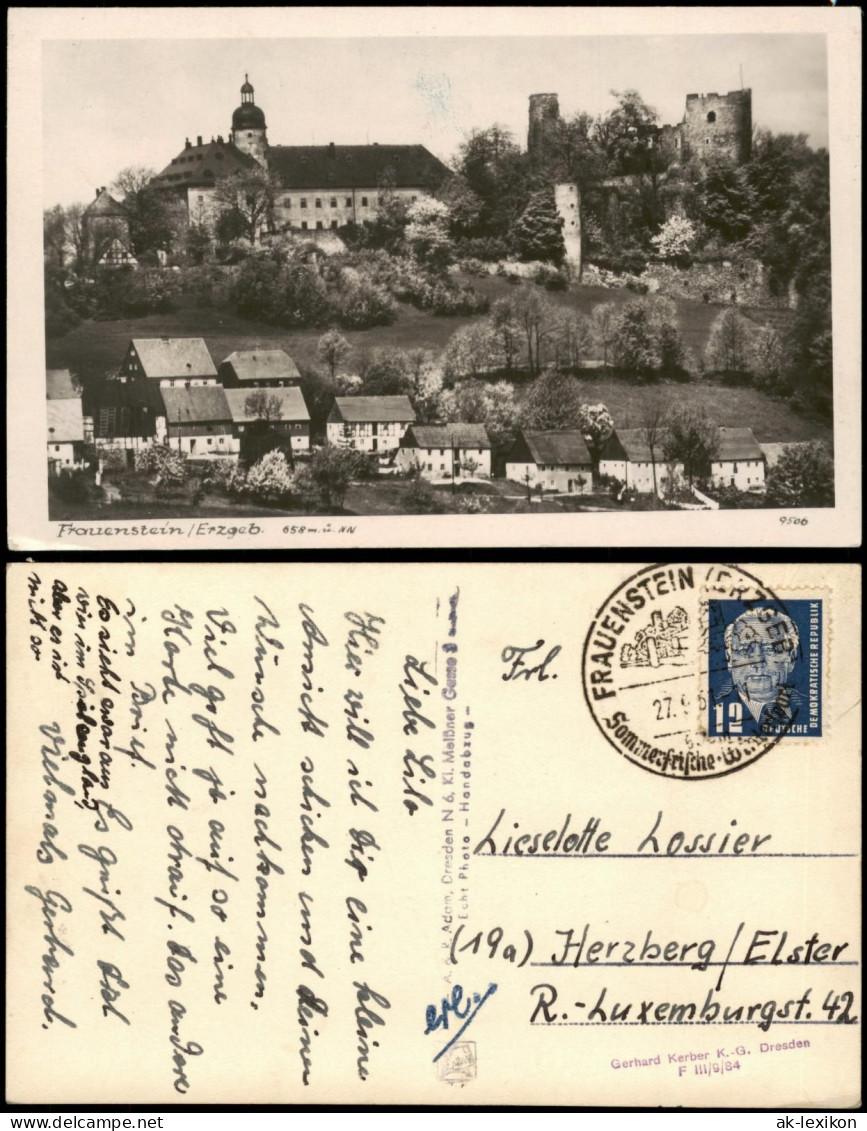 Frauenstein/Erzgeb. 658 m. ü. NN
9506
Liebe Lilo
Hier will ich Dir eine kleine
Ansicht schicken und Deinem
Wunsche nachkommen,
Viel geht ja auf so eine
Karte nicht drauf. Das andere
im Brief.
Es grüßt Dich
Vielmals Gerhard.
Es sieht zwar aus
wie im
aber es ist
nicht so
Adam, Dresden N 6, Kl. Meißner Gasse
Echt Photo – Handabzug –
FRAUENSTEIN (ERZGEB)
27. 9. 51
Sommerfrische
12
DEUTSCHE DEMOKRATISCHE REPUBLIK
Frl.
Lieselotte Lossier
(19a) Herzberg/Elster
R.-Luxemburgst. 42
erl.
Gerhard Kerber K.-G. Dresden
F III/9/84
ak-lexikon